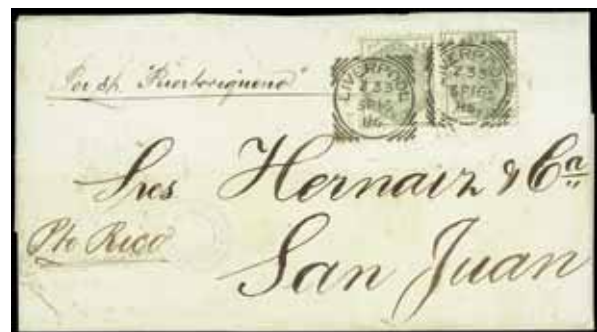 Per s/s. "Puertorriqueno"
LIVERPOOL
Z 33
SP 16
86
LIVERPOOL
Z 33
SP 16
86
Sres Hernaiz & Ca
Pto Rico
San Juan